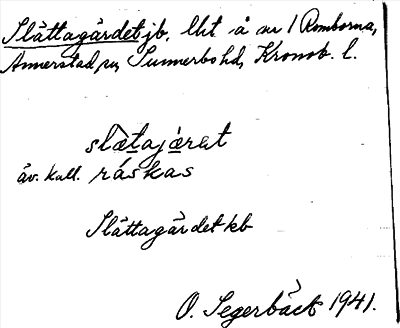 Slättagärdet jb. lht å nr 1 Romborna,
Annerstad sn, Sunnerbo hd, Kronob. l.
slæ̀tajǽrat
äv. kall. ráskas
Slättagärdet kb
O. Segerbäck 1941.